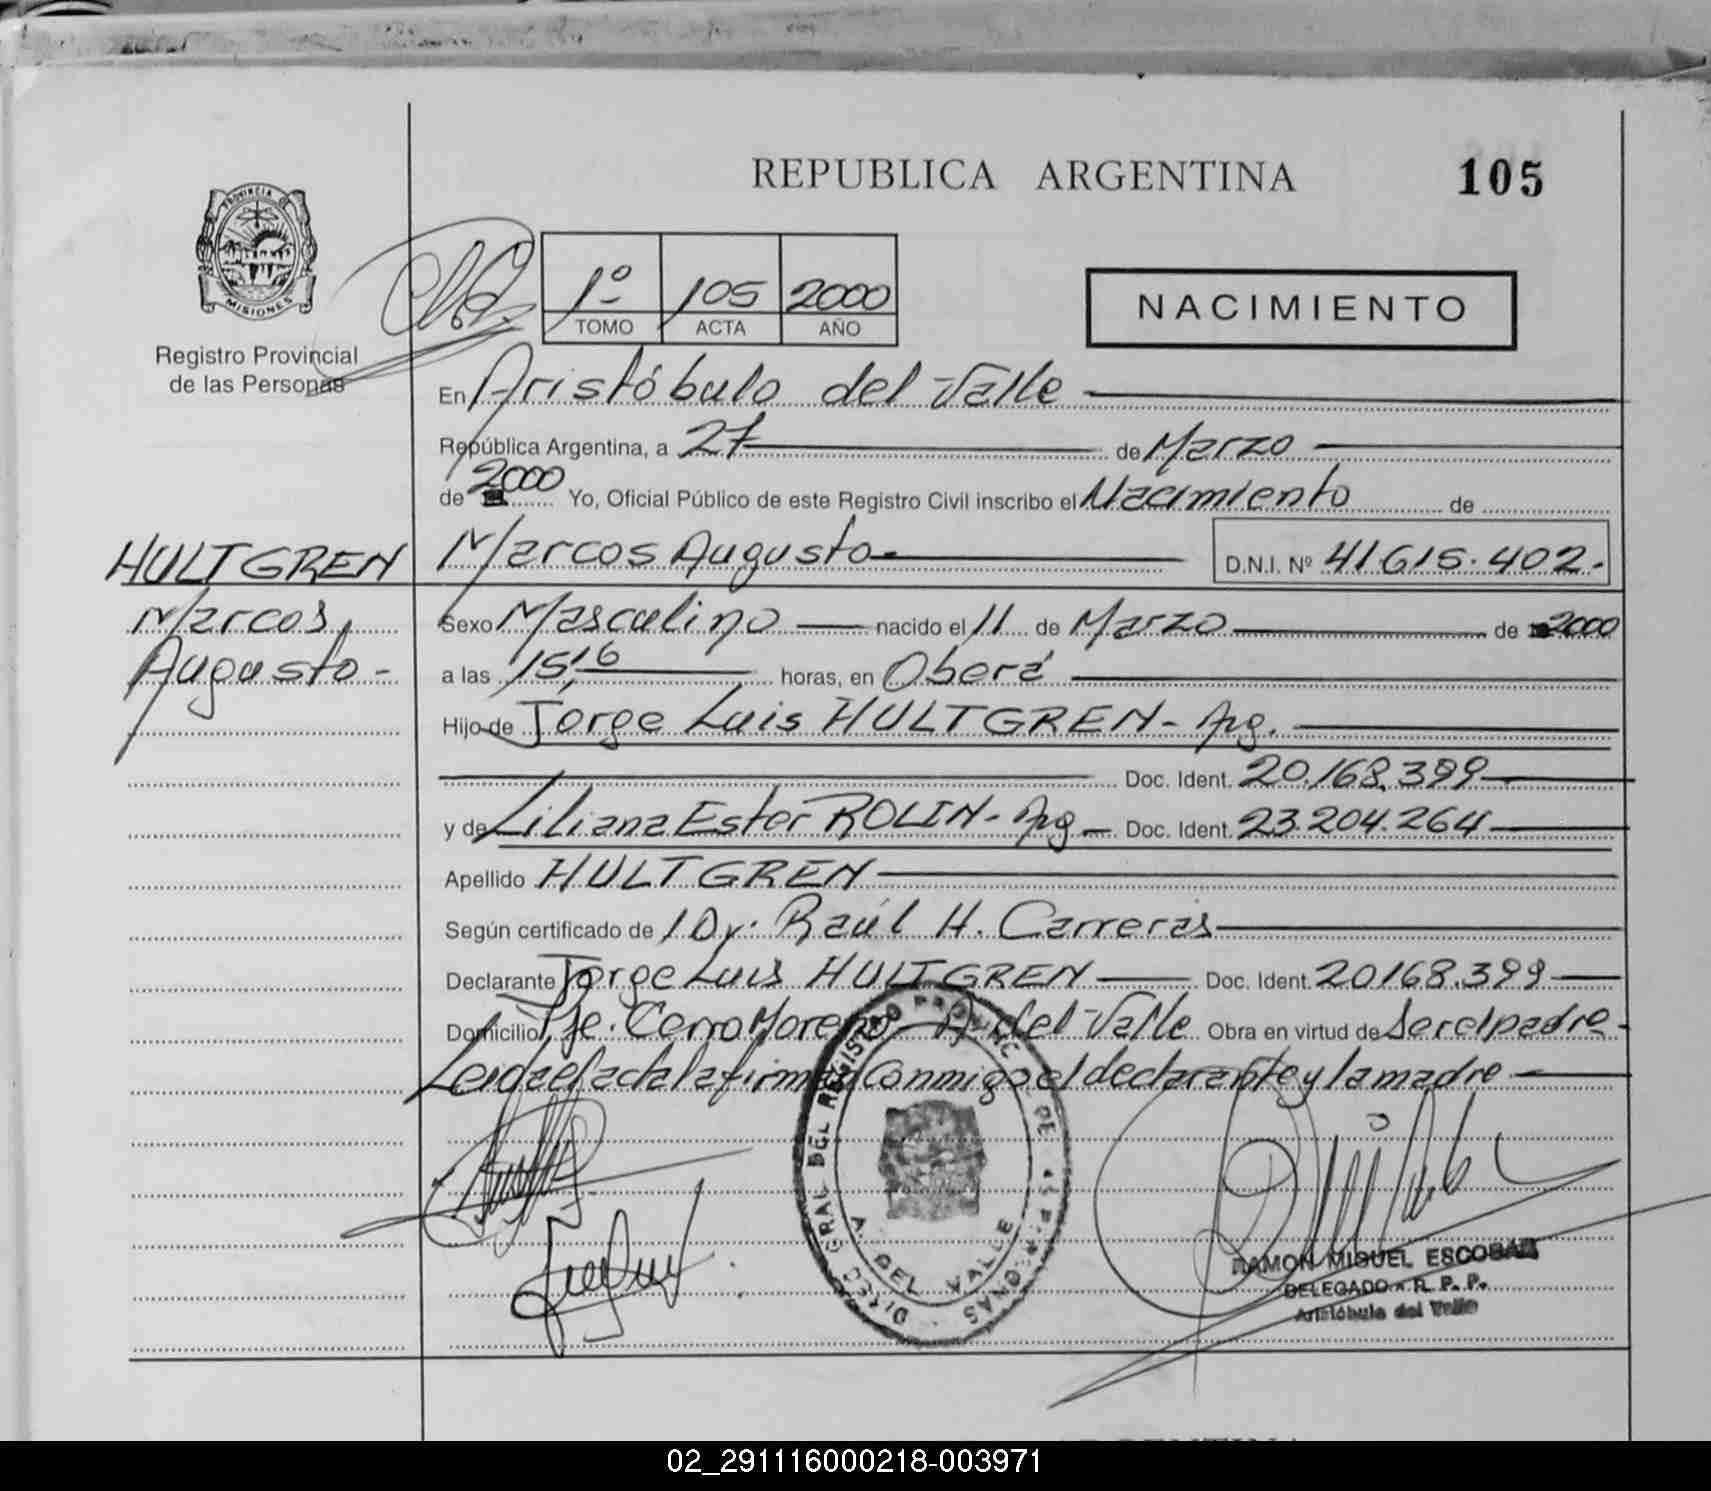 REPUBLICA ARGENTINA
105
PROVINCIA DE
MISIONES
Registro Provincial
de las Personas
1º 105 2000
TOMO ACTA AÑO
NACIMIENTO
En Aristóbulo del Valle
República Argentina, a 27 de Marzo
de 2000 Yo, Oficial Público de este Registro Civil inscribo el Nacimiento de
HULTGREN
Marcos Augusto
D.N.I. Nº 41.615.402.-
Marcos
Augusto-
Sexo Masculino nacido el 11 de Marzo de 2000
a las 15,16 horas, en Oberá
Hijo de Jorge Luis HULTGREN- Arg.
Doc. Ident. 20.168.399
y de Liliana Ester ROLIN- Arg Doc. Ident. 23.204.264
Apellido HULTGREN
Según certificado de Dr. Raúl H. Carreras
Declarante Jorge Luis HULTGREN Doc. Ident. 20168.399
Domicilio Pje. Cerro Moreno- A. del Valle Obra en virtud de Ser el padre-
Leida el acta la firman conmigo el declarante y la madre
DIREC. GRAL. DEL REGISTRO PROVINC. DE LAS PERSONAS
A. DEL VALLE
RAMON MIGUEL ESCOBAR
DELEGADO - R. P. P.
Aristóbulo del Valle
02_291116000218-003971